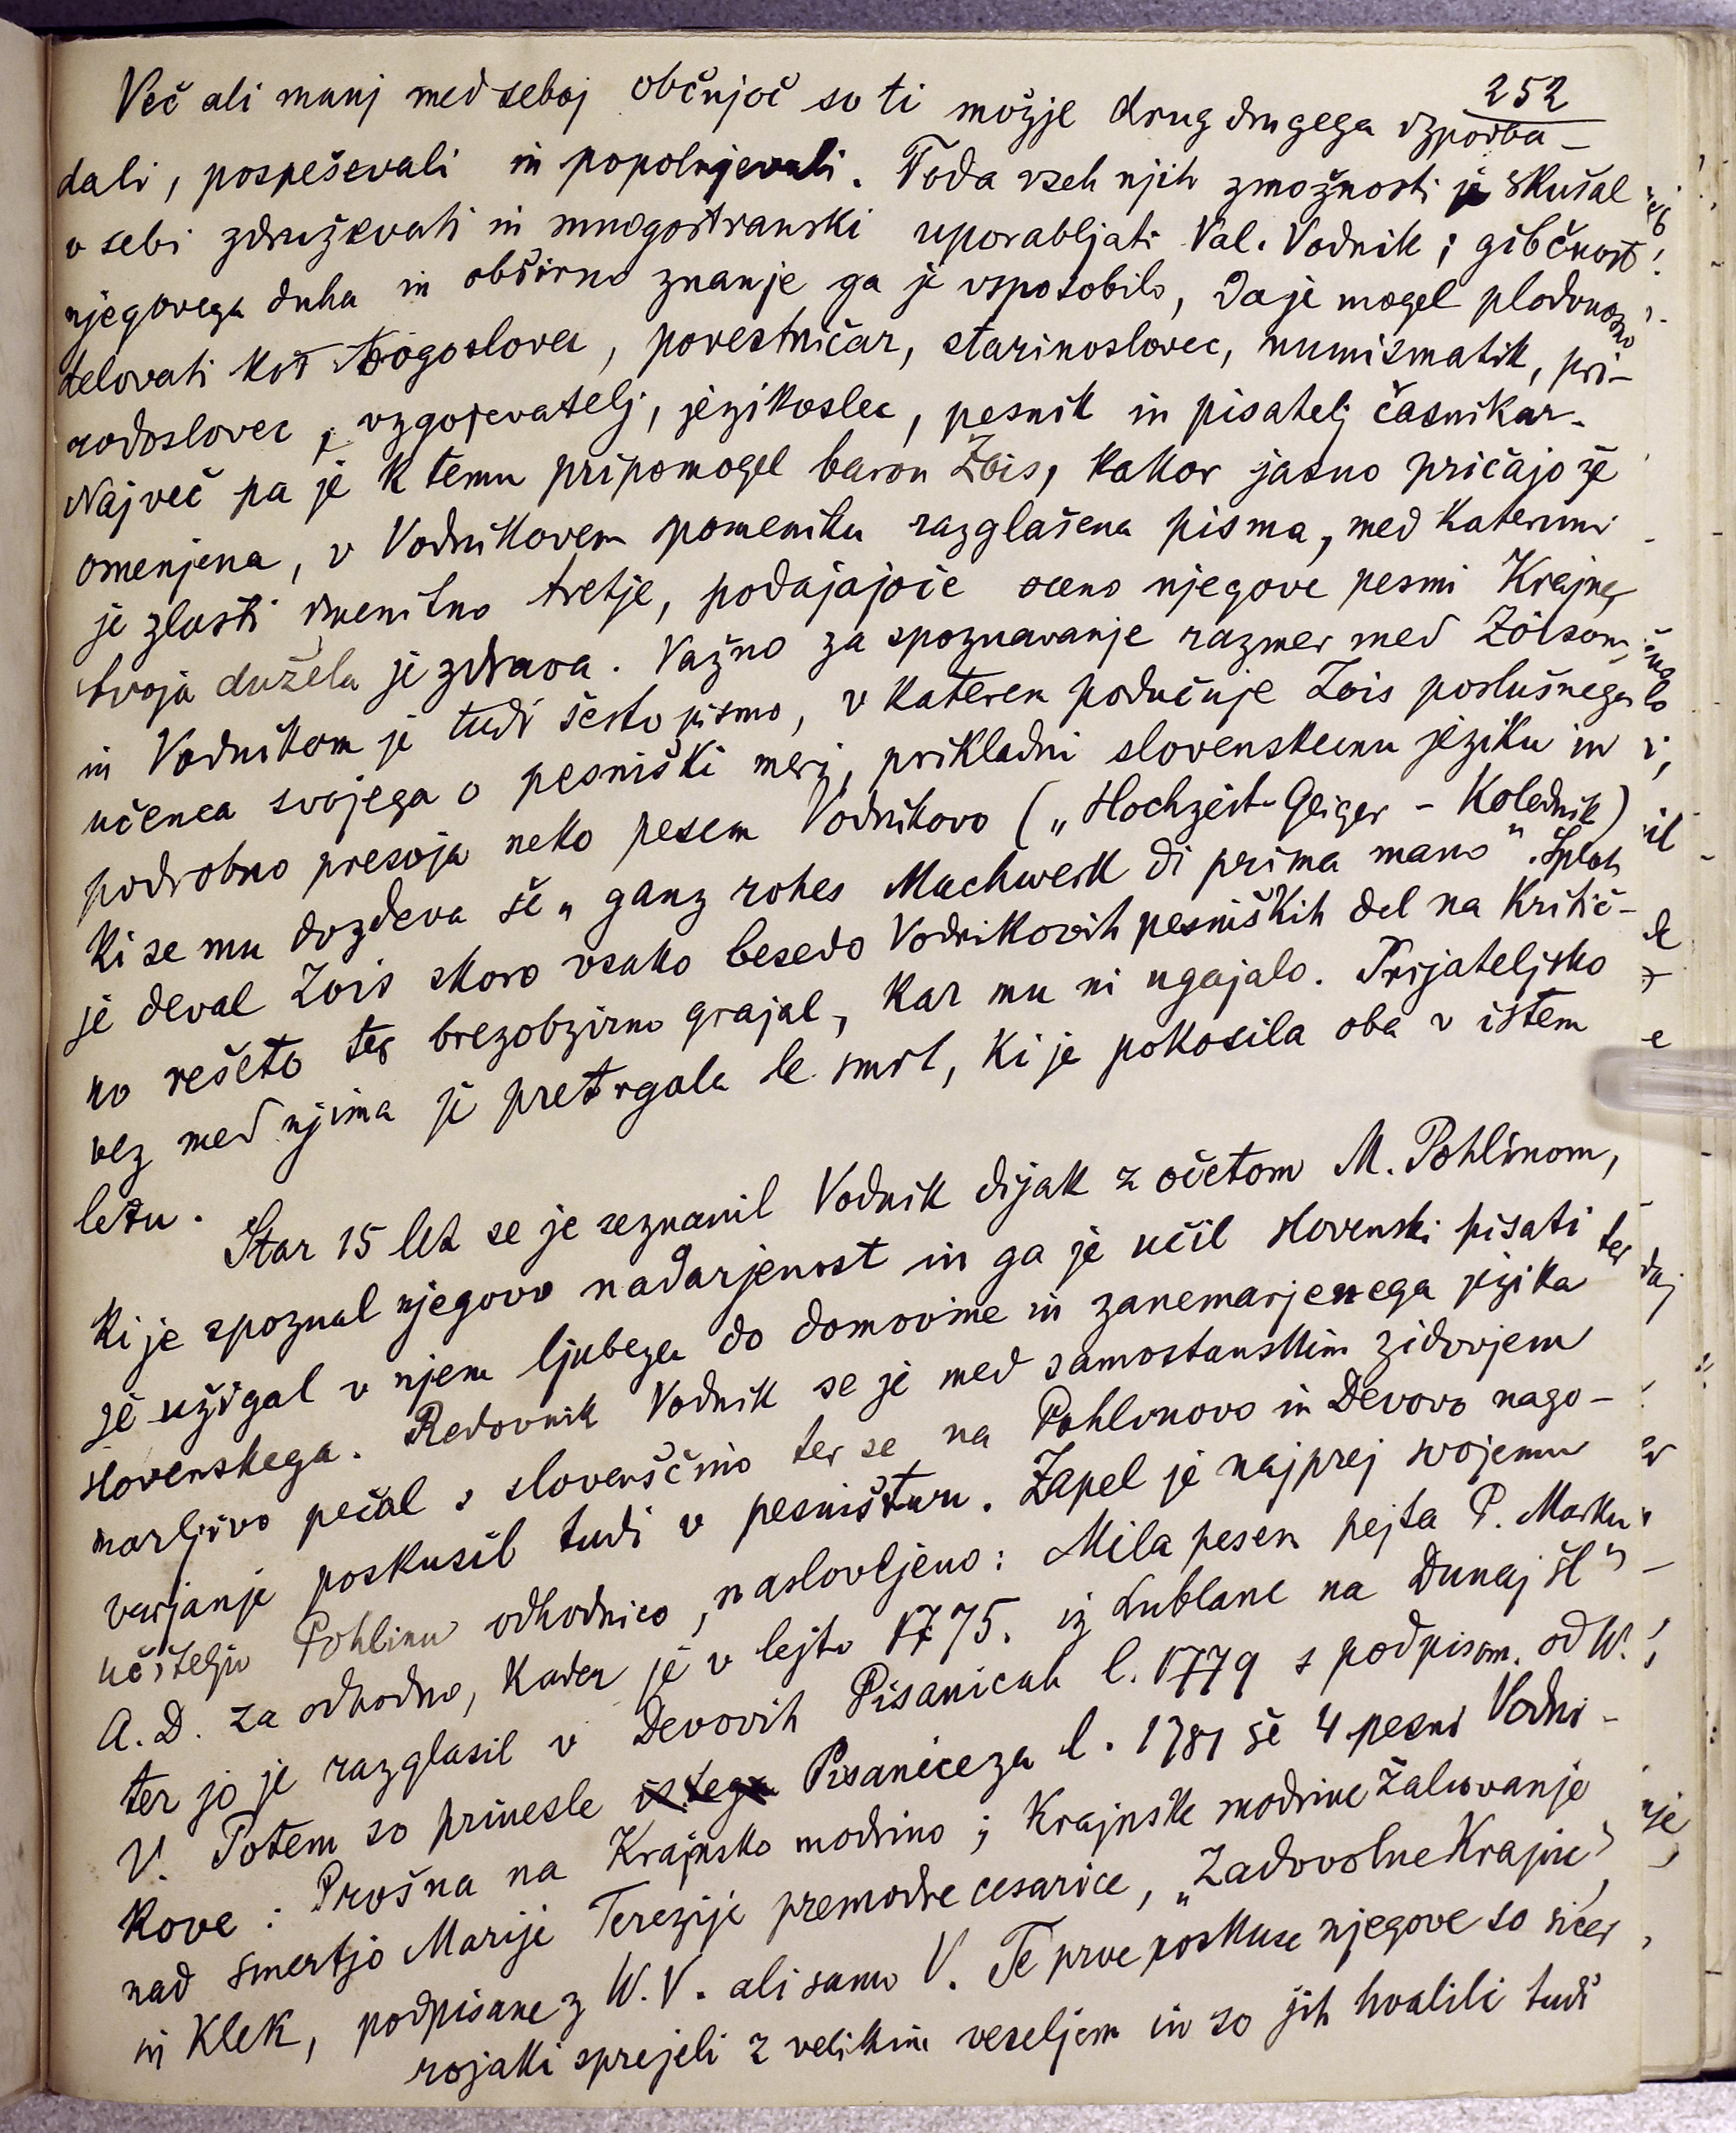 252
Več ali manj med seboj občujoč so ti možje drug drugega vzpodba-
dali, pospeševali in popolnjevali. Toda vseh njih zmožnosti je skušal
v sebi združevati in mnogostranski uporabljati Val. Vodnik; gibčnost
njegovega duha in obširno znanje ga je vsposobilo, da je mogel plodonosno
delovati kot bogoslovec, povestničar, starinoslovec, numismatik, pri-
rodoslovec, vzgojevatelj, jezikoslec, pesnik in pisatelj časnikar.
Največ pa je k temu pripomogel baron Zois, kakor jasno pričajo že
omenjena, v Vodnikovem spomeniku razglašena pisma, med katerimi
je zlasti imenitno tretje, podajajoče oceno njegove pesmi Krajnc,
tvoja dužela je zdrava. Važno za spoznavanje razmer med Zoisom
in Vodnikom je tudi šesto pismo, v katerem podučuje Zois poslušnega
učenca svojega o pesniški meri, prikladni slovenskemu jeziku in
podrobno presoja neko pesem Vodnikovo („Hochzeit-Geiger - Kolednik“)
ki se mu dozdeva še „ganz rohes Machwerk di prima mano“. Sploh
je deval Zois skoro vsako besedo Vodnikovih pesniških del na kritič-
no rešeto ter brezobzirno grajal, kar mu ni ugajalo. Prijateljsko
vez med njima je pretrgala le smrt, ki je pokosila oba v istem
letu.
Star 15 let se je seznanil Vodnik dijak z očetom M. Pohlinom,
ki je spoznal njegovo nadarjenost in ga je učil slovenski pisati ter
je užigal v njem ljubezen do domovine in zanemarjenega jezika
slovenskega. Redovnik Vodnik se je med samostanskim zidovjem
marljivo pečal s slovenščino ter se na Pohlinovo in Devovo nago-
varjanje poskusil tudi v pesništvu. Zapel je najprej svojemu
učitelju Pohlinu odhodnico, naslovljeno: Mila pesem pejta P. Marku
A. D. za odhodno, kader je v lejtu 1775. iz Lublane na Dunaj šl“
ter jo je razglasil v Devovih Pisanicah l. 1779 s podpisom. od W.
V. Potem so prinesle istega Pisanice za l. 1781 še 4 pesni Vodni-
kove: Prošna na Krajnsko modrino; Krajnske modrine žaluvanje
nad smertjo Marije Terezije premodre cesarice, „Zadovolne Krajnc“,
in Klek, podpisane z W. V. ali samo V. Te prve poskuse njegove so sicer
rojaki sprejeli z velikim veseljem in so jih hvalili tudi